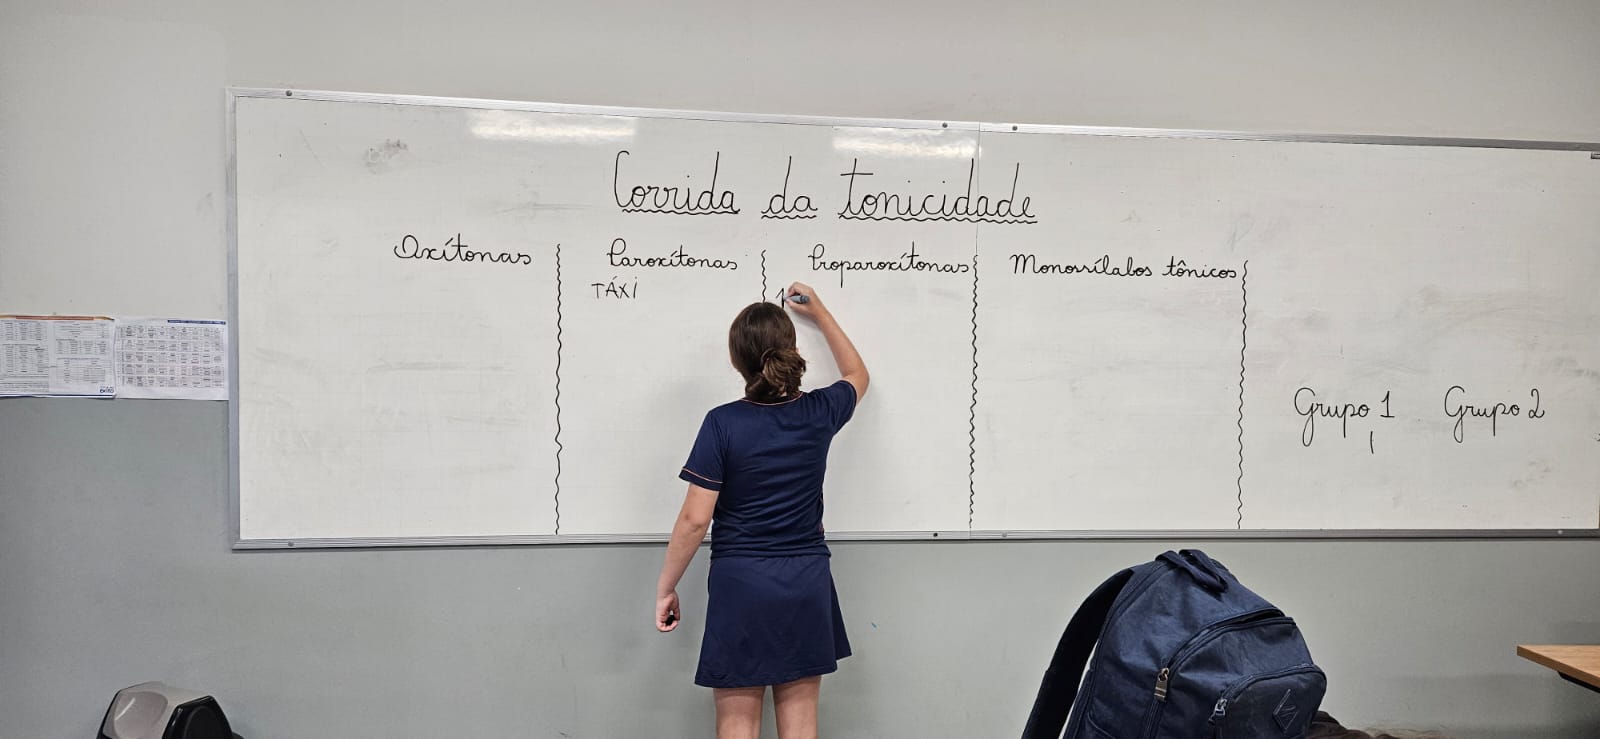 Corrida da tonicidade
Oxítonas
Paroxítonas
Proparoxítonas
Monossílabos tônicos
TÁXI
Grupo 1
Grupo 2